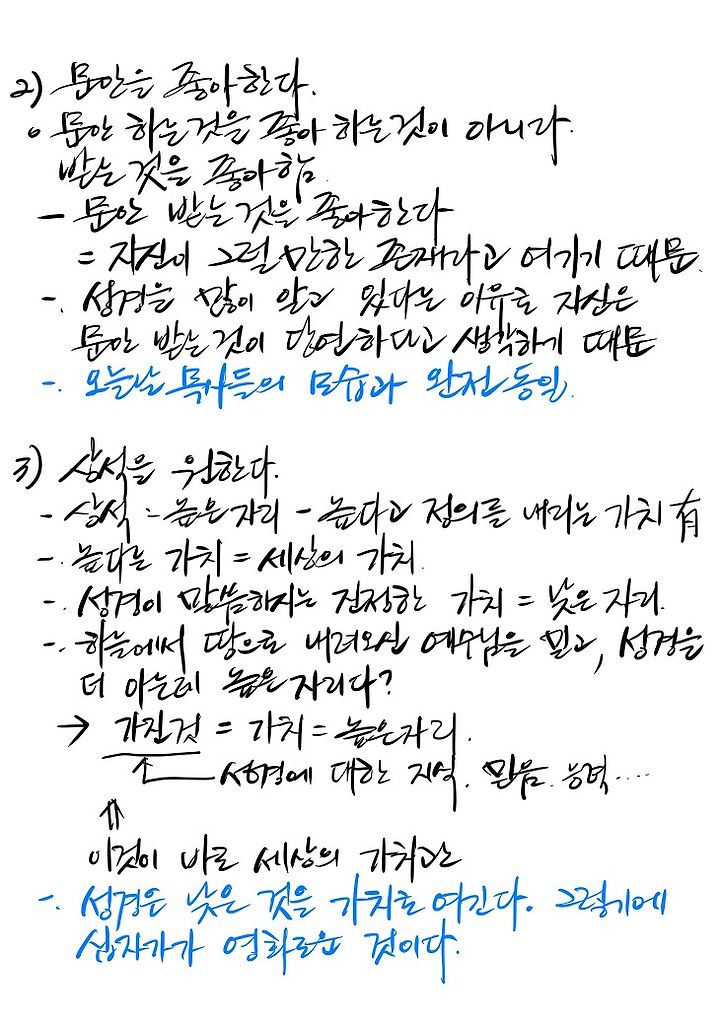 2) 문안을 좋아한다.
∘ 문안 하는것을 좋아 하는것이 아니라.
받는 것을 좋아함.
- 문안 받는 것을 좋아한다
= 자신이 그럴 만한 존재라고 여기기 때문.
-. 성경을 많이 알고 있다는 이유로 자신은
문안 받는 것이 당연하다고 생각하기 때문
-. 오늘날 목사들의 모습과 완전 동일.
3) 상석을 원한다.
- 상석 = 높은 자리 - 높다고 정의를 내리는 가치 有
-. 높다는 가치 = 세상의 가치.
-. 성경이 말씀하시는 진정한 가치 = 낮은 자리.
-. 하늘에서 땅으로 내려오신 예수님을 믿고, 성경을
더 아는데 높은 자리다?
→ 가진것 = 가치 = 높은자리.
성경에 대한 지식. 믿음. 능력....
⇑
이것이 바로 세상의 가치관
-. 성경은 낮은 것을 가치로 여긴다. 그렇기에
십자가가 영화로운 것이다.